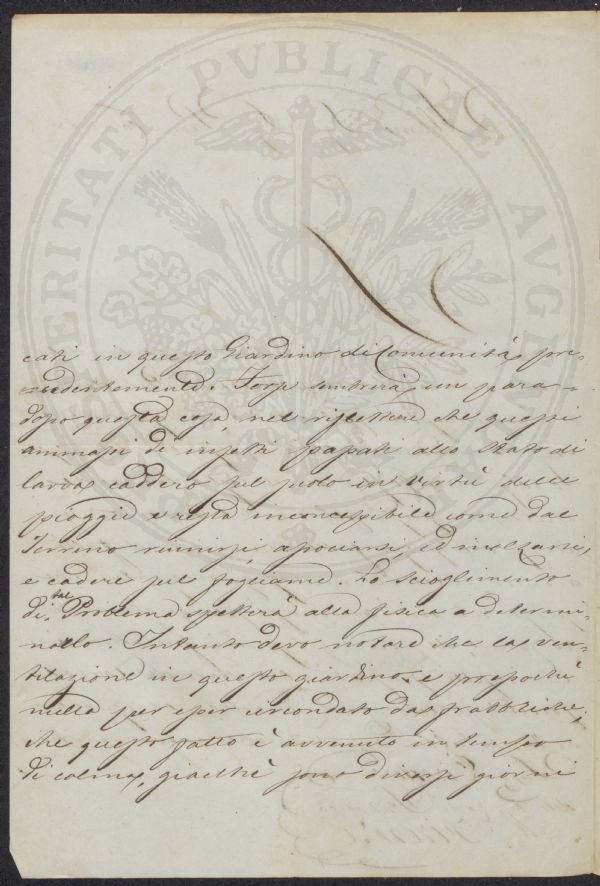 PROSPERITATI PVBLICAE AVGENDAE
cati in questo Giardino di Comunità, pre-
cedentemente. Forse sembrerà un para-
dosso questa cosa nel riflettere che questi
ammassi di insetti passati allo stato di
larva caddero sul suolo in virtù delle
pioggie e resta inconcessibile come dal
Terreno riunirsi, associarsi, ed inalzarsi,
e cadere sul fogliame. Lo scioglimento
di tal Problema spetterà alla fisica a determi-
narlo. Intanto devo notare che la ven-
tilazione in questo giardino e pressochè
nulla per esser circondato da frabbriche,
che questo fatto è avvenuto in tempo
di calma, giacchè sono diversi giorni